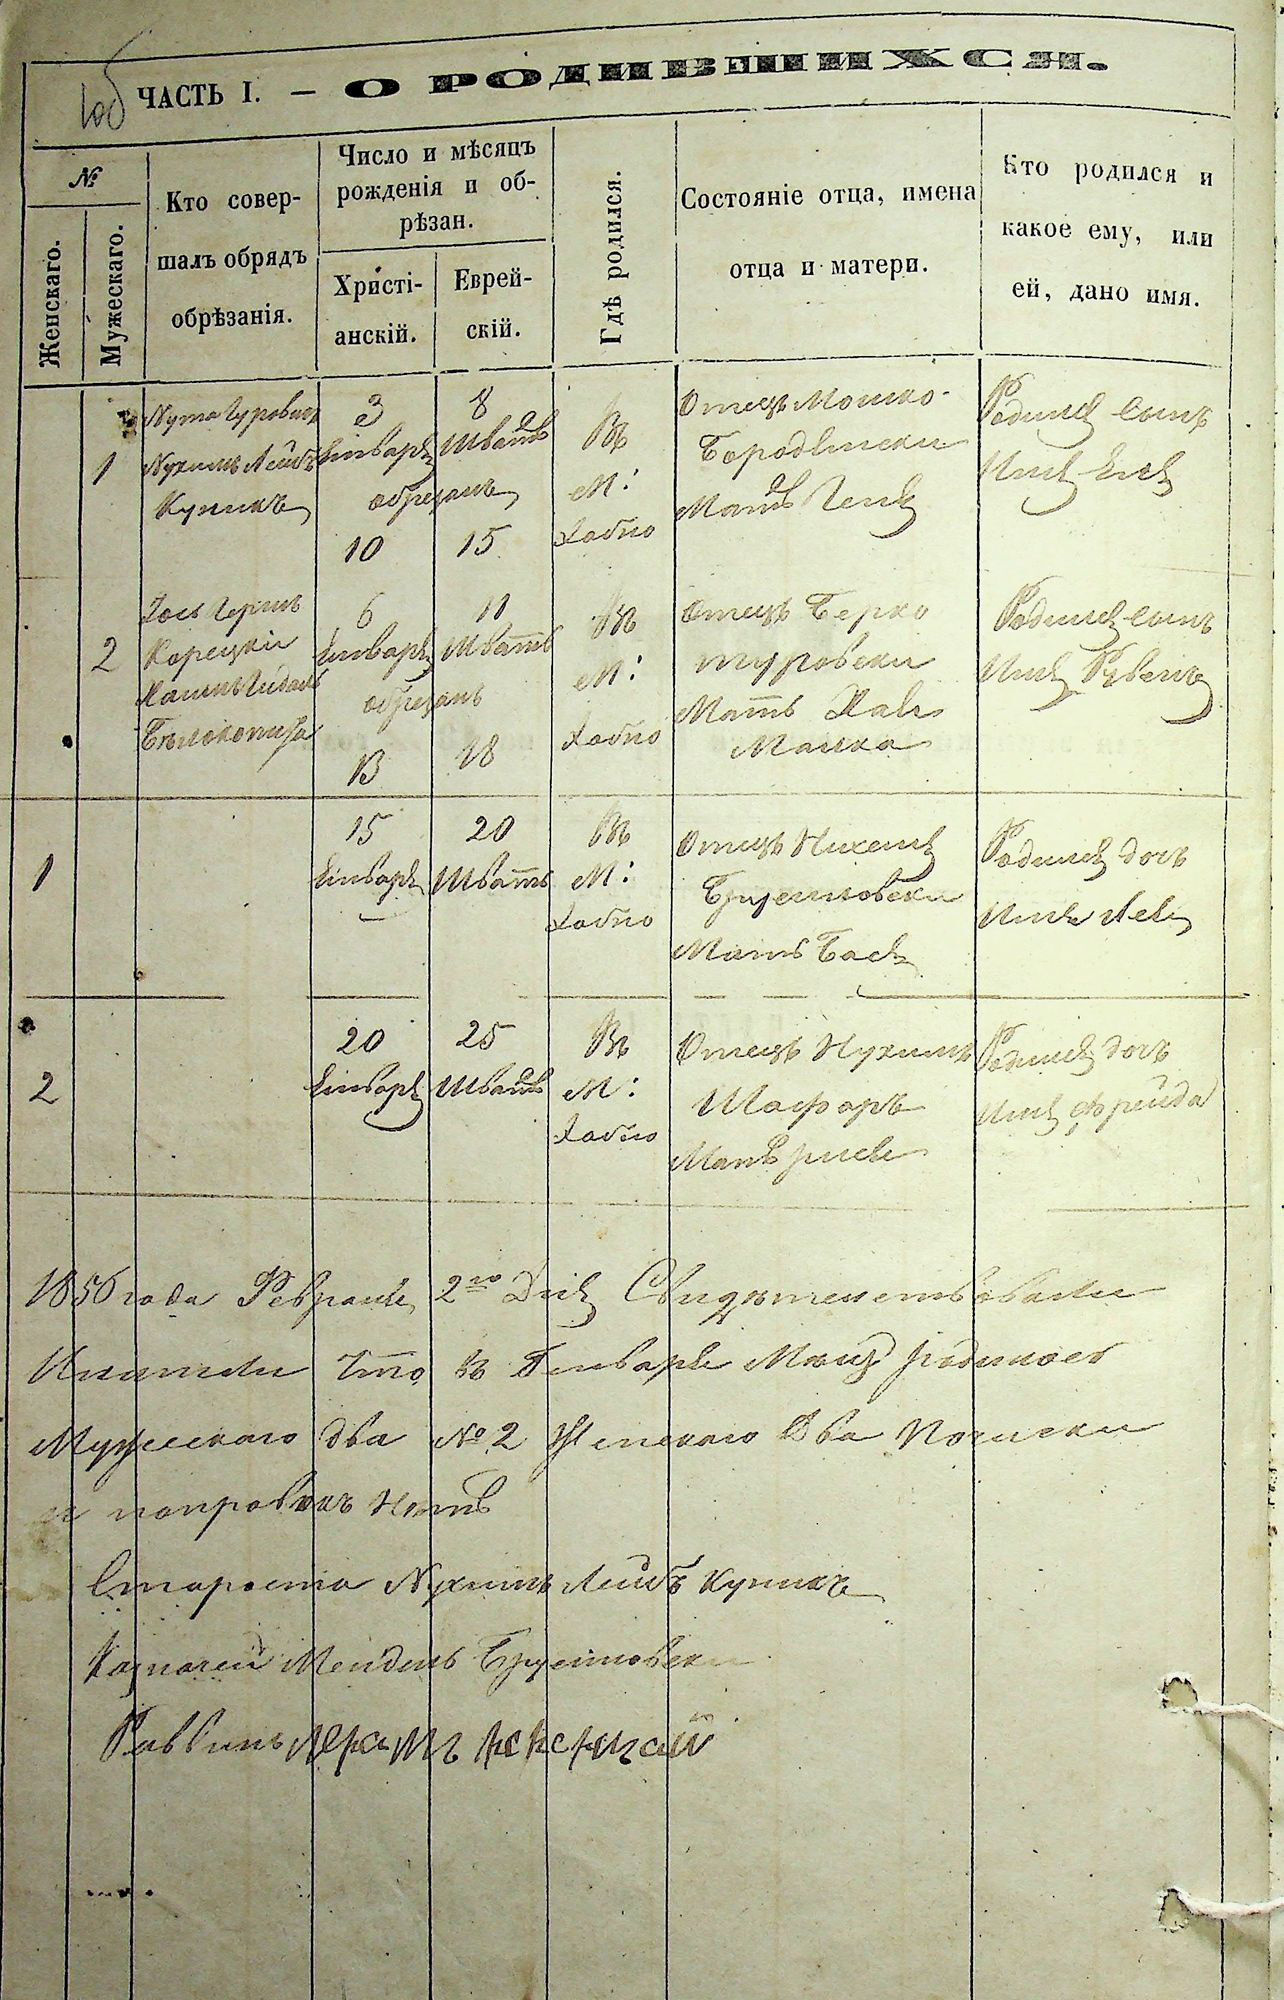 ЧАСТЬ I. — О РОДИВШИХСЯ.
№
Женскаго.
Мужескаго.
Кто совер-
шалъ обрядъ
обрѣзанія.
Число и мѣсяцъ
рожденія и об-
рѣзан.
Христі-
анскій.
Еврей-
скій.
Гдѣ родился.
Состояніе отца, имена
отца и матери.
Кто родился и
какое ему, или
ей, дано имя.
1
Нута Гуровичъ
Нухимъ Лейбъ
Куникъ
3
Января
обрезанъ
10
8
Шватъ
15
Въ
М:
Хабно
Отецъ Мошко
Бородянски
Мать Геня
Родился сынъ
Имя Еля
2
Іось Герш
Корецкій
Белокопита
6
Января
обрезанъ
13
11
Шватъ
18
Въ
М:
Хабно
Отецъ Берко
туровски
Мать Хая
Малка
Родился сынъ
Имя Рувенъ
1
15
Январь
20
Шватъ
Въ
М:
Хабно
Отецъ Михель
Брусиловски
Мать Бася
Родилась дочъ
Имя Лея
2
20
Январь
25
Шватъ
Въ
М:
Хабно
Отецъ Нухимъ
Шафаръ
Мать
Родилась дочъ
Имя Фрейда
1856 года Февраля 2го Дня Свидѣтельствовали
Что в Генваре Месяце родилось
Мужескаго два №2 Женскаго Два Почистки
и поправокъ Нетъ
Староста Нухимъ Лейбъ Куникъ
Казначей Мендель Брусиловски
Раввинъ